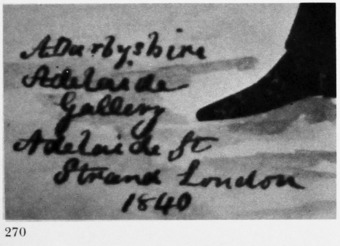 A Darbyshire
Adelaide
Gallery
Adelaide St
Strand London
1840
270